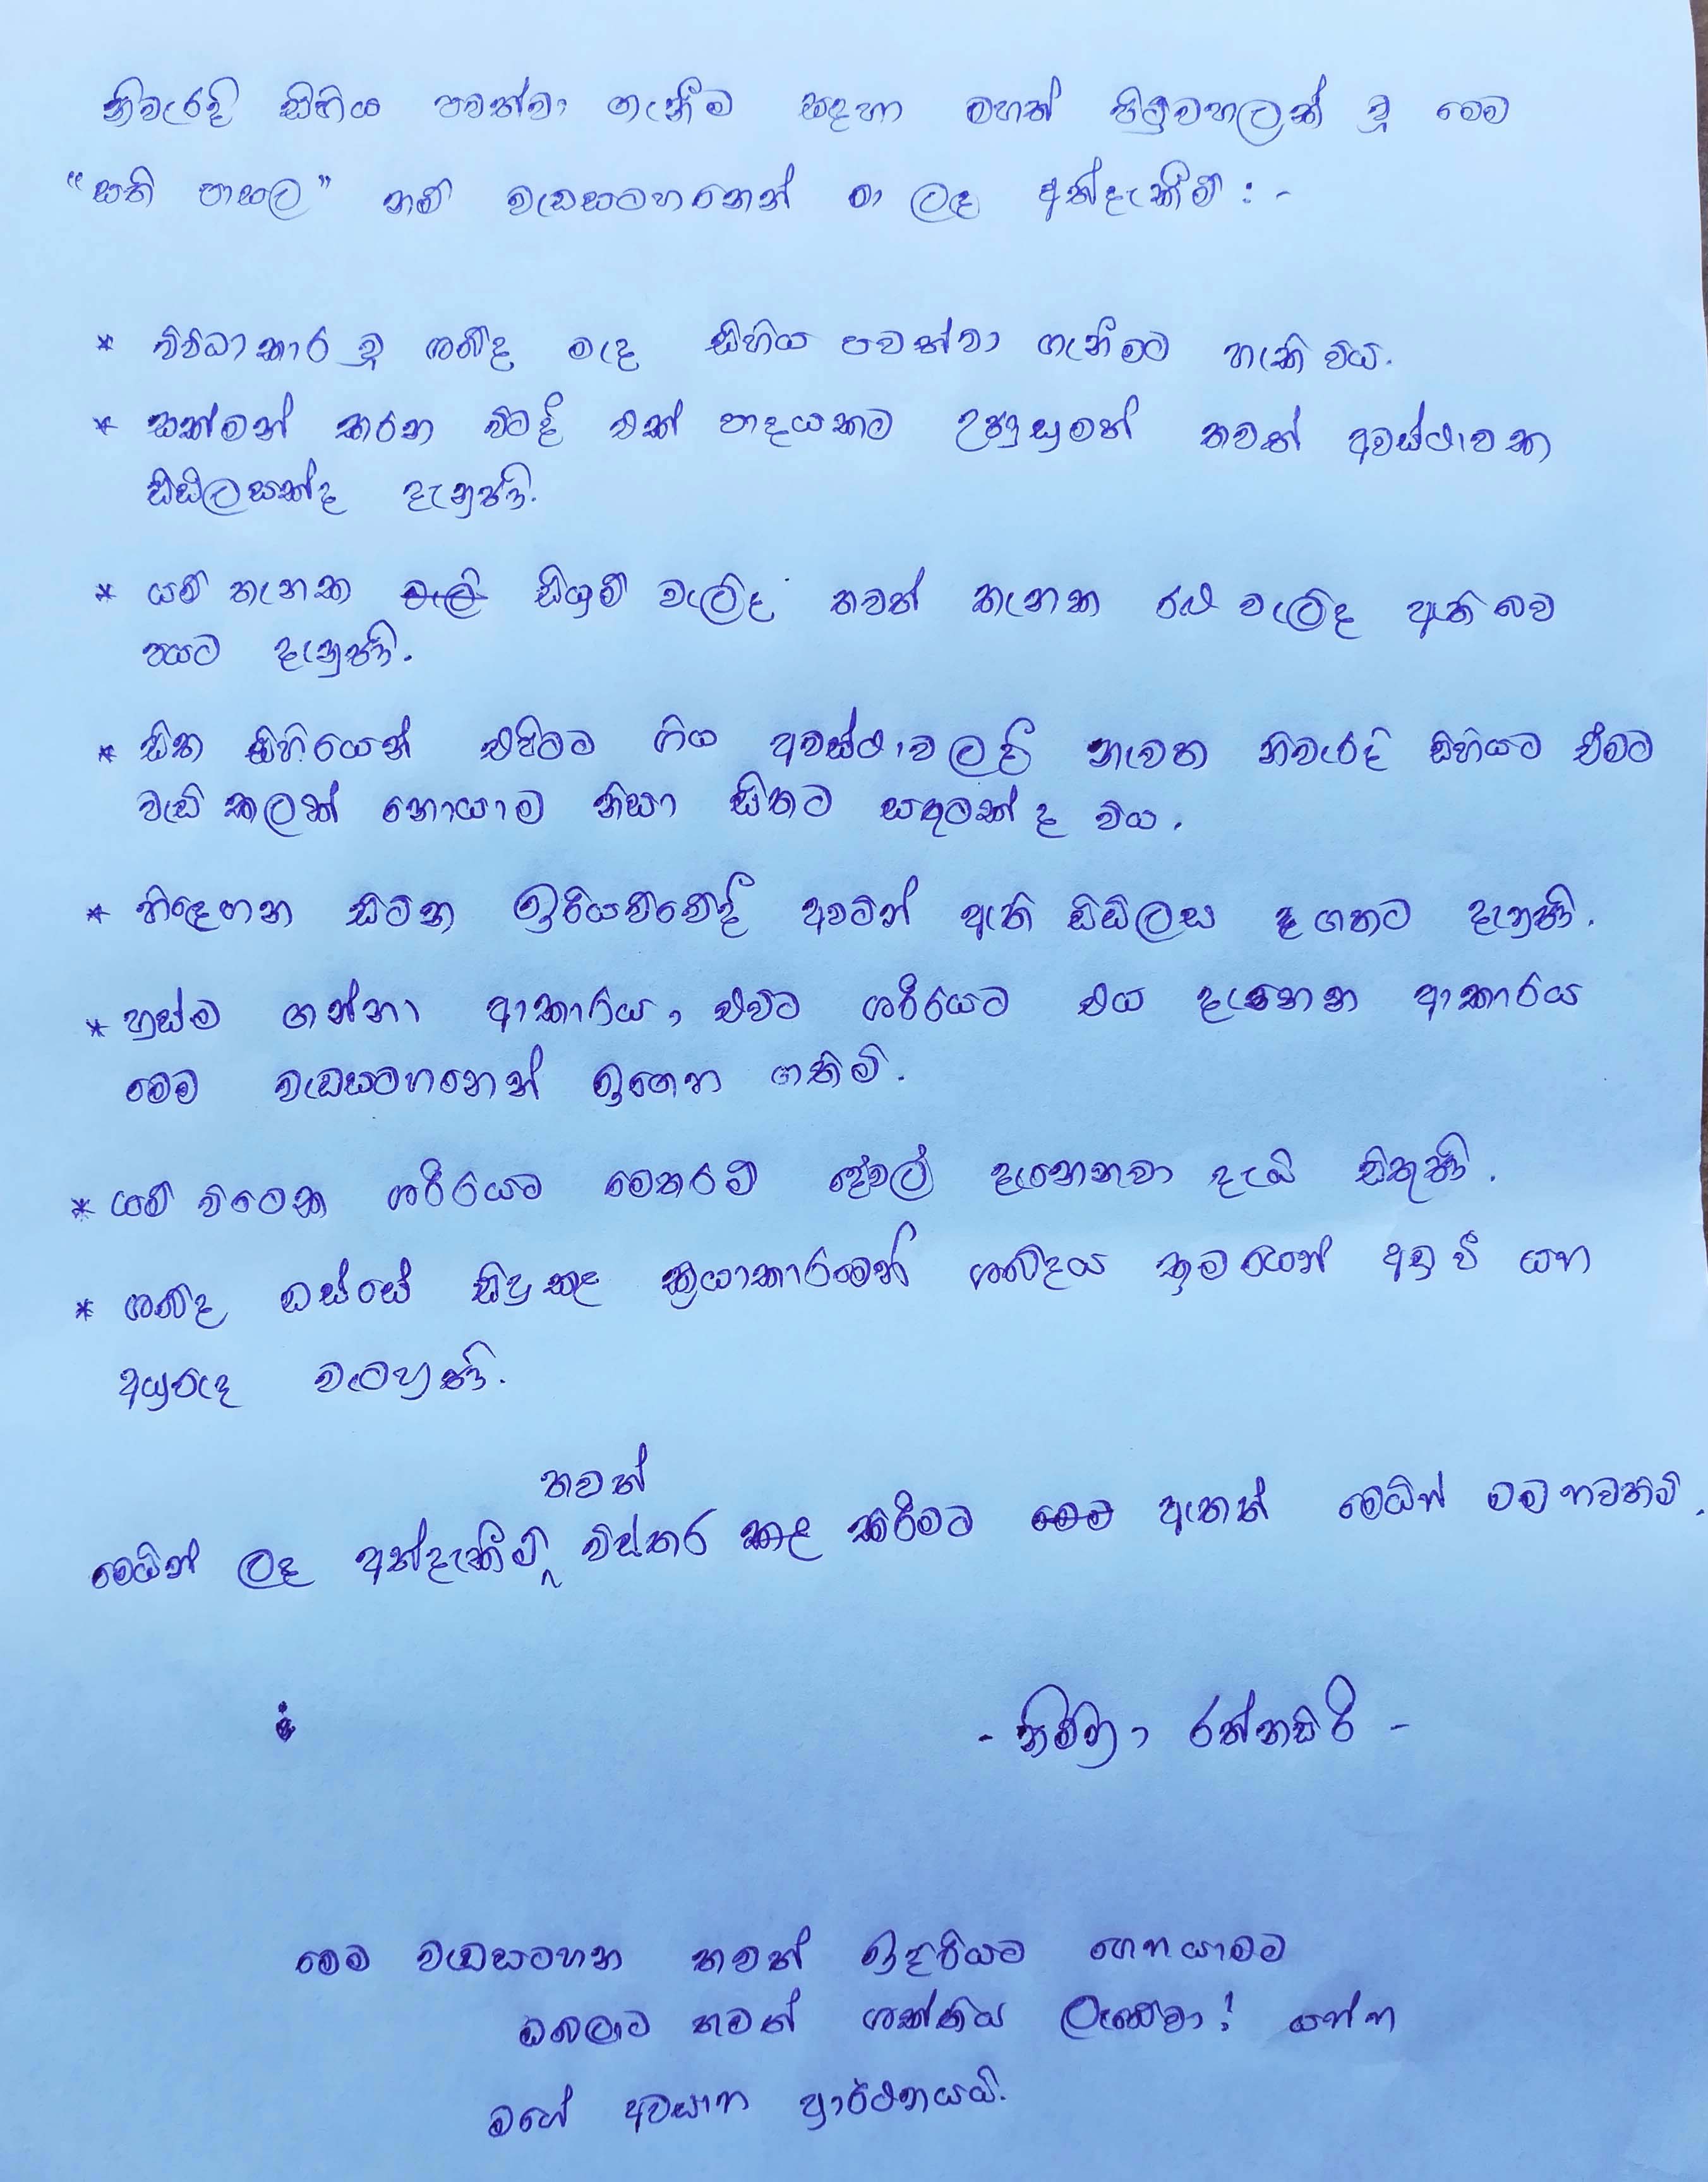 නිවැරදි සිහිය පවත්වා ගැනීම සඳහා මහත් පිටුවහලක් වූ මෙම
“සති පාසල” නම් වැඩසටහනෙන් මා ලද අත්දැකීම් : -
* විවිධාකාර වූ ශබ්ද මැද සිහිය පවත්වා ගැනීමට හැකි විය.
* සක්මන් කරන විටදී එක් පාදයකට උණුසුමත් තවත් අවස්ථාවක
සිසිලසක්ද දැනුණි.
* යම් තැනක වැලි සියුම් වැලිද තවත් තැනක රළු වැලිද ඇති බව
පයට දැනුණි.
* සිත සිහියෙන් එපිටට ගිය අවස්ථාවලදී නැවත නිවැරදි සිහියට ඒමට
වැඩි කලක් නොයාම නිසා සිතට සතුටක්ද විය.
* හිඳගෙන සිටින ඉරියව්වේදී අවටින් ඇති සිසිලස දෑ ගතට දැනුණි.
* හුස්ම ගන්නා ආකාරය, එවිට ශරීරයට එය දැනෙන ආකාරය
මෙම වැඩසටහනෙන් ඉගෙන ගතිමි.
* යම් විටෙක ශරීරයට මෙතරම් දේවල් දැනෙනවා දැයි සිතුණි.
* ශබ්ද ඔස්සේ සිදුකළ ක්‍රියාකාරමෙන් ශබ්දය ක්‍රමයෙන් අඩු වී යන
අයුරුද වැටහුණි.
තවත්
මෙයින් ලද අත්දැකීම් විස්තර කළ කිරීමට මෙම ඇතත් මෙයින් මම නවතිමි.
- නිම්නා රත්නසිරි -
මෙම වැඩසටහන තවත් ඉදිරියට ගෙනයාමට
ඔබලාට තවත් ශක්තිය ලැබේවා! යන්න
මගේ අවසාන ප්‍රාර්ථනයයි.